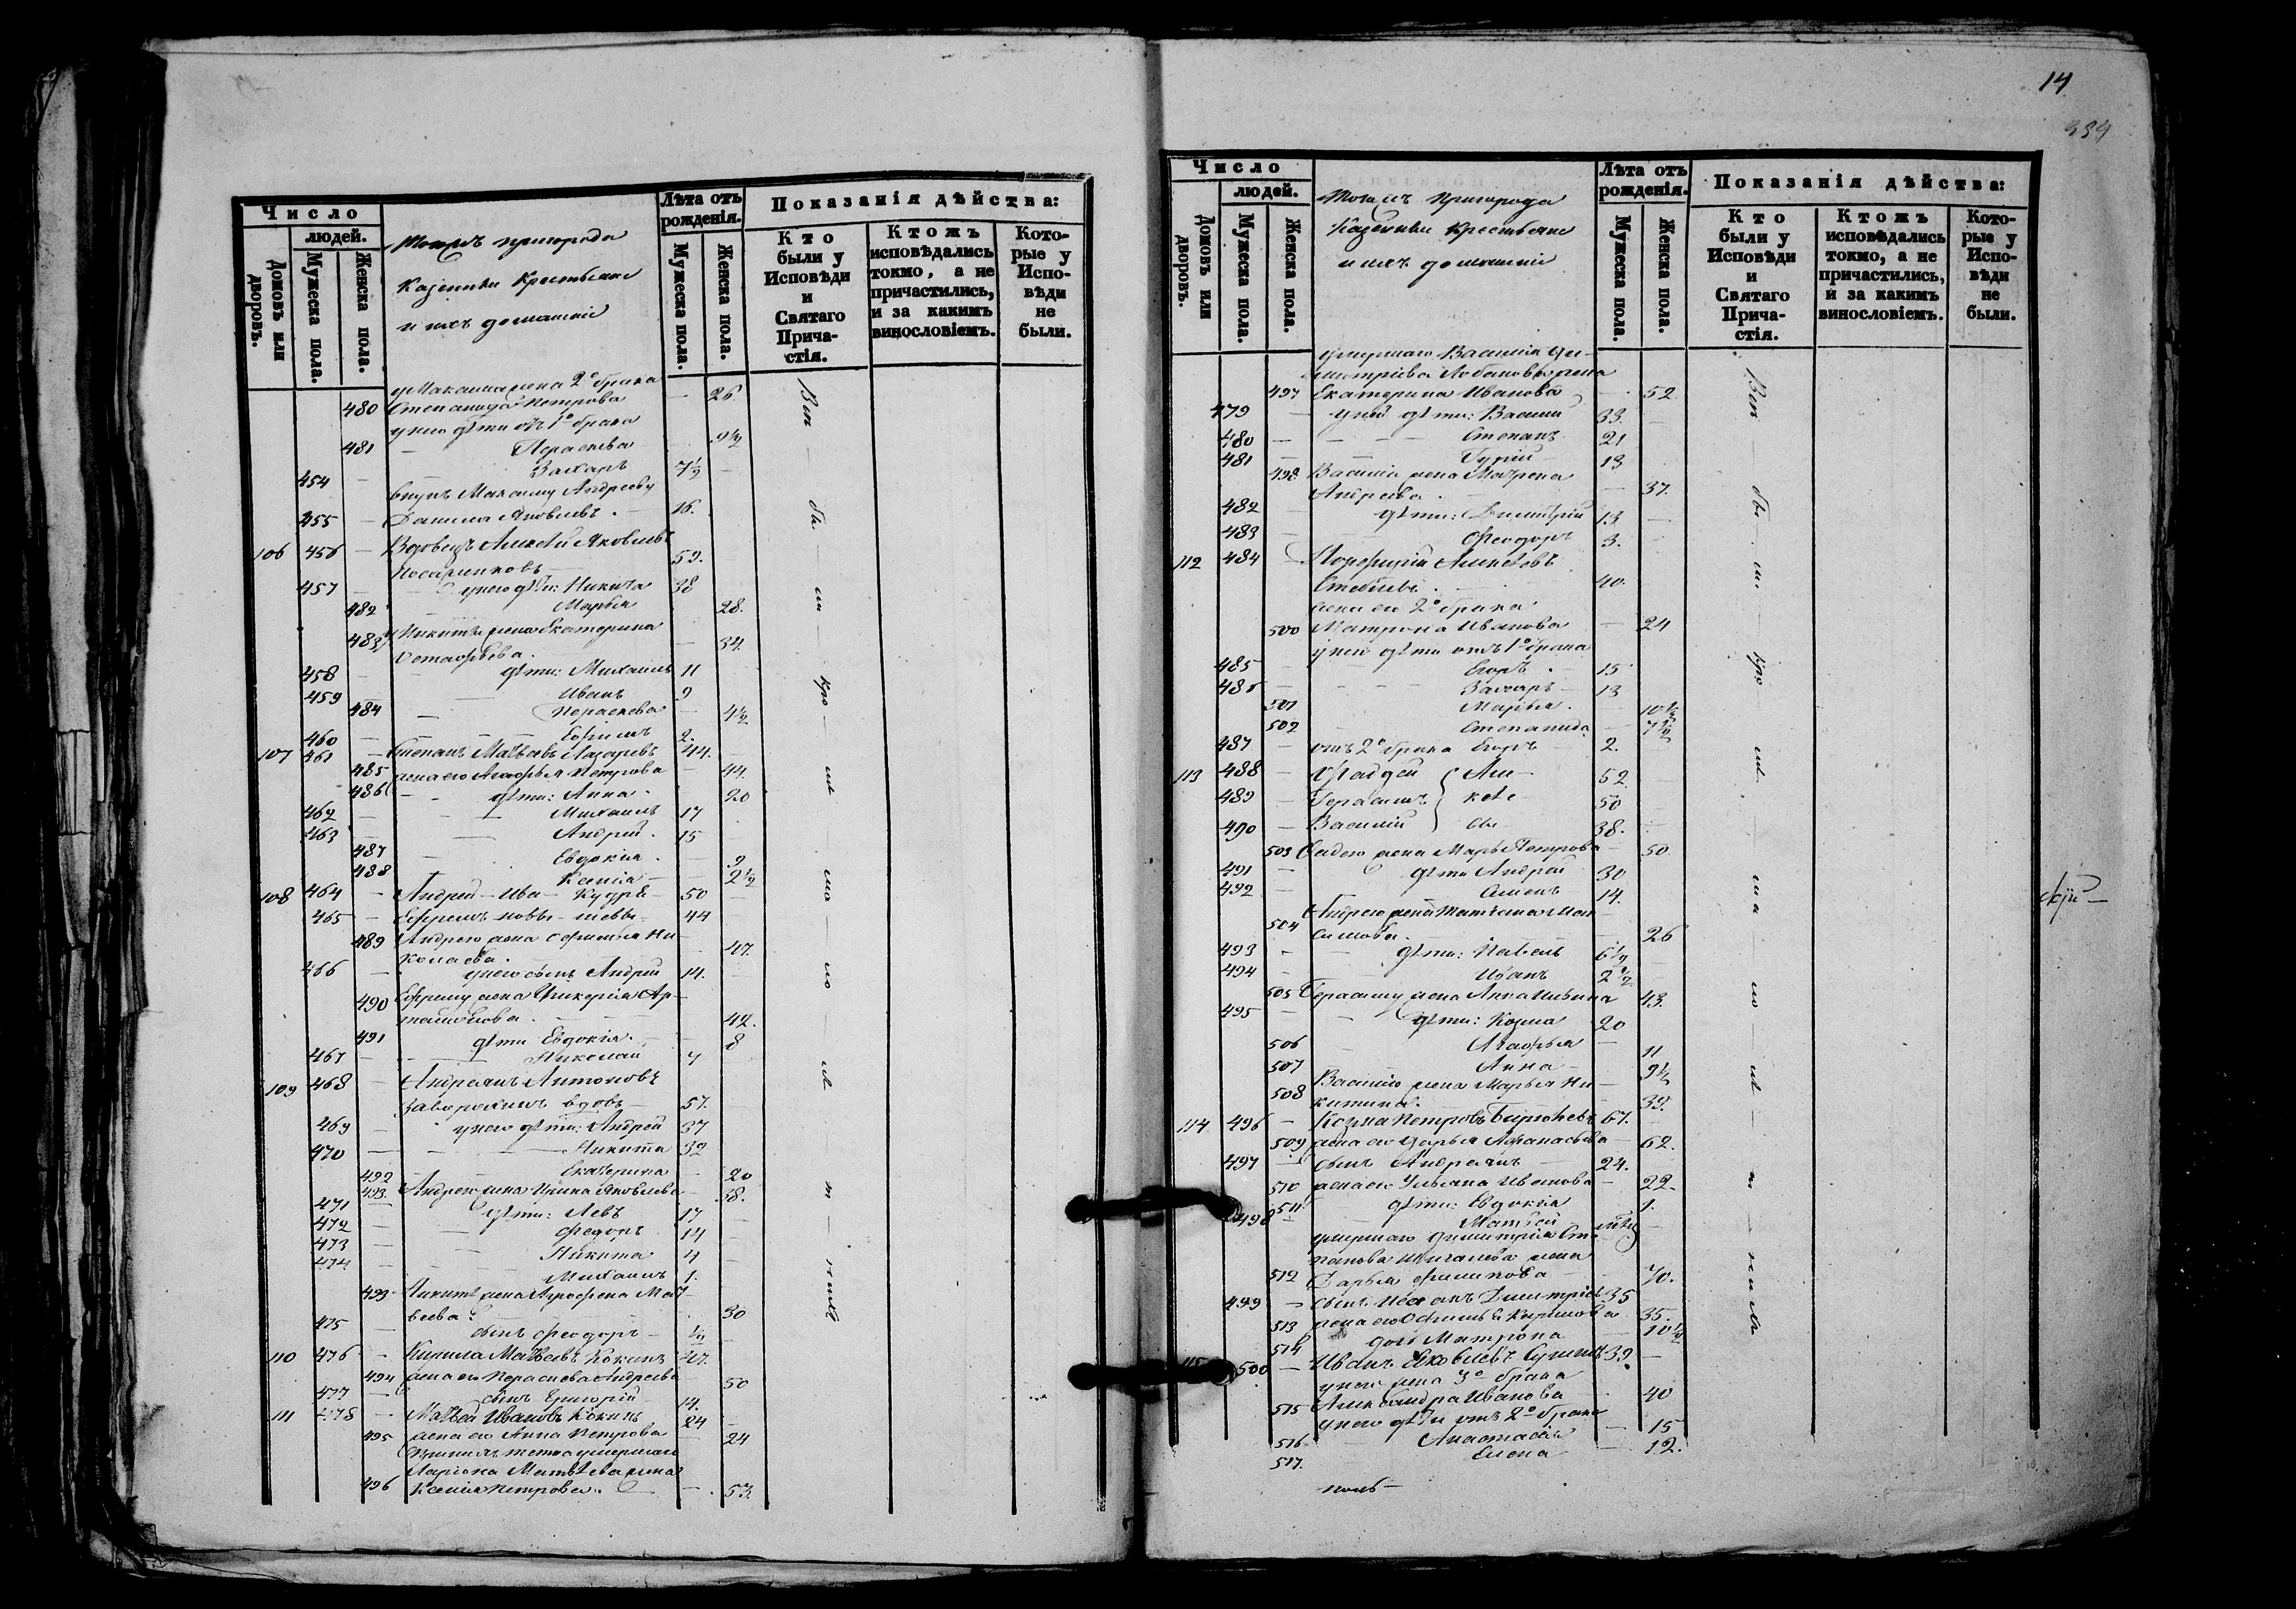 Число
людей.
Домовъ или дворовъ.
Мужеска пола.
Женска пола.
Тогожъ пригорода
Казенныи Крестьяне
и ихъ домашніи
Лѣта отъ рожденія.
Мужеска пола.
Женска пола.
Показанія дѣйства:
Кто были у Исповѣди и Святаго Прича-стія.
Ктожъ исповѣдались токмо, а не причастились, и за какимъ винословіемъ.
Кото-рые у Испо-вѣди не были.
у Максима жена 2º брака
480 Степанида Петрова — 26
у него дѣти отъ 1º брака
481 — Параскева 9½
454 — Захаръ 7½ —
внукъ Максиму Андрееву
455 — Данила Яковлевъ. — 16.
106 456 — Вдовецъ Алексѣй Яковлевъ
59.
457 — у него дѣти: Никита 38
482 Марья 28.
483 Никиты жена Екатерина
— 34.
458 — дѣти: Михаилъ 11
459 — Иванъ 9
484 — Параскева — 4½
460 — Ефимъ 2.
107 461 — Степанъ Матвѣевъ Лазаревъ 44.
485 жена его Агафья Петрова — 44.
486 — дѣти: Анна 20
462 — Михаилъ 17
463 — Андрей. 15
487 — Евдокія. — 9
488 Ксенія — 2½
108 464 — Андрей — Ива — Кудря — 50 —
465 — Ефремъ новы — шевы — 44
489 Андрею жена Офимья Ни-
колаева. 47.
466 — у него сынъ Андрей 14.
490 Ефрему жена Гликерія Ар-
42.
491 дѣти Евдокія. — 8
467 — Николай 4
109 468 — Андреянъ Антоновъ
вдовъ — 57.
469 — у него дѣти: Андрей 37
470 — Никита 32
492 Екатерина — 20
493 Андрею жена Ирина Яковлева 38.
471 — дѣти: Левъ 17
472 — Федоръ 14
473 — Никита 4
474 — Михаилъ 1.
493 Никитѣ жена Агрофена Мат-
вѣева 30
475 — сынъ Феодоръ — ½
110 476 — Кирила Матвѣевъ Кокинъ 47.
494 жена его Параскева Андреева 50
477 — сынъ Григорій 14.
111 478 — Матвѣй Ивановъ Кокинъ 24
495 жена его Анна Петрова — 24
тетка умершаго
Ларіона Матвѣева жена
496 Ксенія Петрова. — 53.
Вси — бы — ли — кро — мѣ
14
Число
людей.
Домовъ или дворовъ.
Мужеска пола.
Женска пола.
Тогожъ пригорода
Казенныи Крестьяне
и ихъ домашніи
Лѣта отъ рожденія.
Мужеска пола.
Женска пола.
Показанія дѣйства:
Кто были у Исповѣди и Святаго Прича-стія.
Ктожъ исповѣдались токмо, а не причастились, и за какимъ винословіемъ.
Кото-рые у Испо-вѣди не были.
умершаго Василія Ди-
митріева Лобанова жена
497 Екатерина Иванова — 52
479 — у ней дѣти: Василій 33.
480 — Степанъ 21
481 — Гурій 13
498 Василія жена Матрена
Андреева. — 37.
482 — дѣти: Димитрій 13 —
483 — Феодоръ 3.
112 484 — Порфирій Алексѣевъ
40.
жена его 2º брака
500 Матрона Иванова — 24
у него дѣти отъ 1º брака
485 — Егоръ. — 15
486 — Захаръ — 13
501 Марья. — 10½
502 Степанида — 7½
487 — отъ 2º брака Егоръ — 2.
113 488 — Фадѣй Але- 52
489 — Герасимъ ксѣе- 50
490 — Василій вы 38.
503 Фадею жена Марья Петрова 50
491 — дѣти Андрей 30
492 — Семенъ 14.
Андрею жена Татіана Мак-
504 симова. — 26
493 — дѣти: Павелъ 6½
494 — Иванъ 2½
505 Герасиму жена Анна Ильина 43.
495 — дѣти: Козма 20
506 — Агафья — 11
507 — Анна — 9½
Василію жена Марья Ни-
508 китина. — 39.
114 496 — Козма Петровъ Бирюлевъ 67.
509 жена его Дарья Афанасьева — 62.
497 — сынъ Андреянъ — 24.
510 жена его Ульяна Иванова — 22.
511 дѣти: Евдокія 1.
498 — Матвѣй
умершаго Димитрія Сте-
панова жена
512 Дарья Филипова — 70.
499 — сынъ Иванъ Димитріевъ 35
513 жена его Офимья Кирилова 35.
514 дочь Матрона — 10½
115 500 — Иванъ Яковлевъ 39 —
у него жена 3º брака
515 Александра Иванова 40
у него дѣти отъ 2º брака
516 Анастасія — 15
517. Елена — 12.
Вси — бы — ли — кро — мѣ